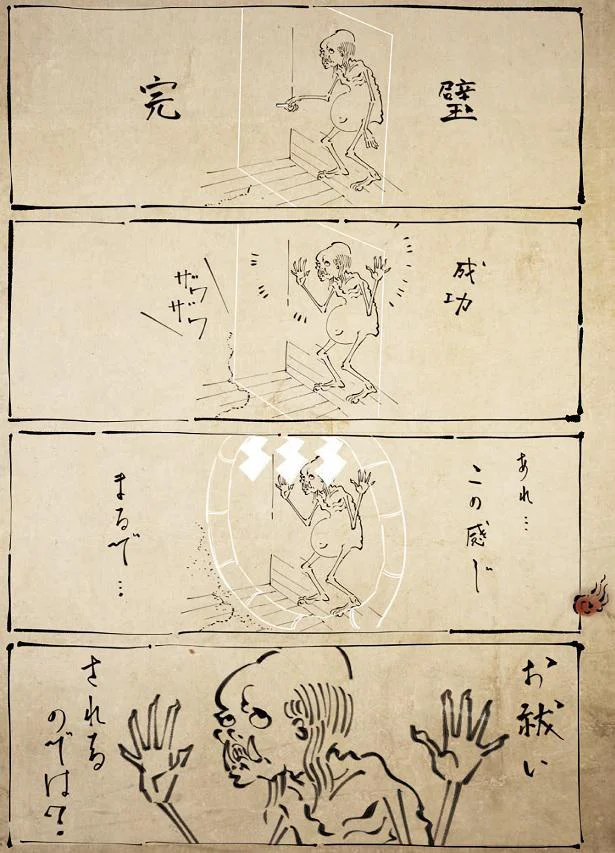 完
璧
成
功
ザワ
ザワ
あれ…
この感じ
まるで…
お祓い
される
のでは?